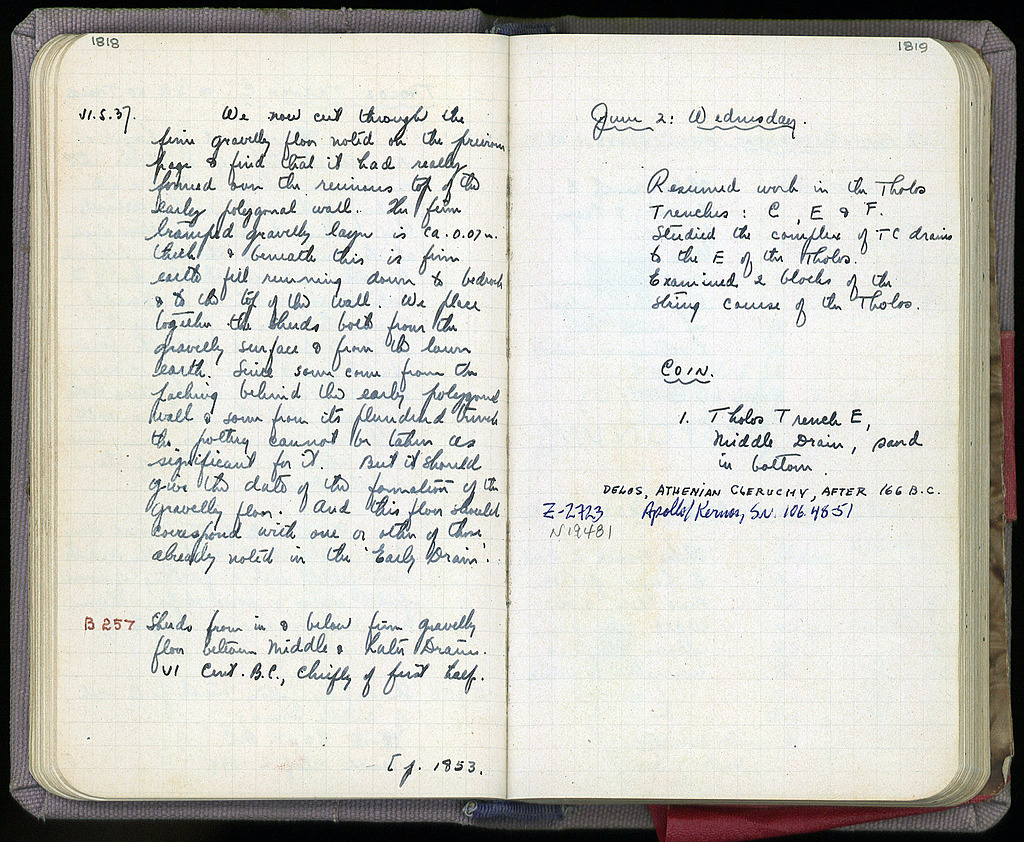 1818
31.5.37. We now cut through the
firm gravelly floor noted on the previous
page & find that it had really
formed over the ruinous top of the
early polygonal wall. The firm
tramped gravelly layer is ca. 0.07 m.
thick & beneath this is firm
earth fill running down to bedrock
& to the top of the wall. We place
together the sherds both from the
gravelly surface & from the lower
earth. Since some come from the
packing behind the early polygonal
wall & some from its plundered trench
the pottery cannot be taken as
significant for it. But it should
give the date of the formation of the
gravelly floor. And this floor should
correspond with one or other of those
already noted in the 'Early Drain'.
B 257 Sherds from in & below firm gravelly
floor between Middle & Later Drains.
VI Cent. B.C., chiefly of first half.
[p. 1853.
1819
June 2: Wednesday.
Resumed work in the Tholos
Trenches: C, E & F.
Studied the complex of TC drains
to the E of the Tholos.
Examined 2 blocks of the
string course of the Tholos.
COIN.
1. Tholos Trench E,
Middle Drain, sand
in bottom.
DELOS, ATHENIAN CLERUCHY, AFTER 166 B.C.
Z-2723 Apollo/Kernos, Sv. 106.48-51
N 19481